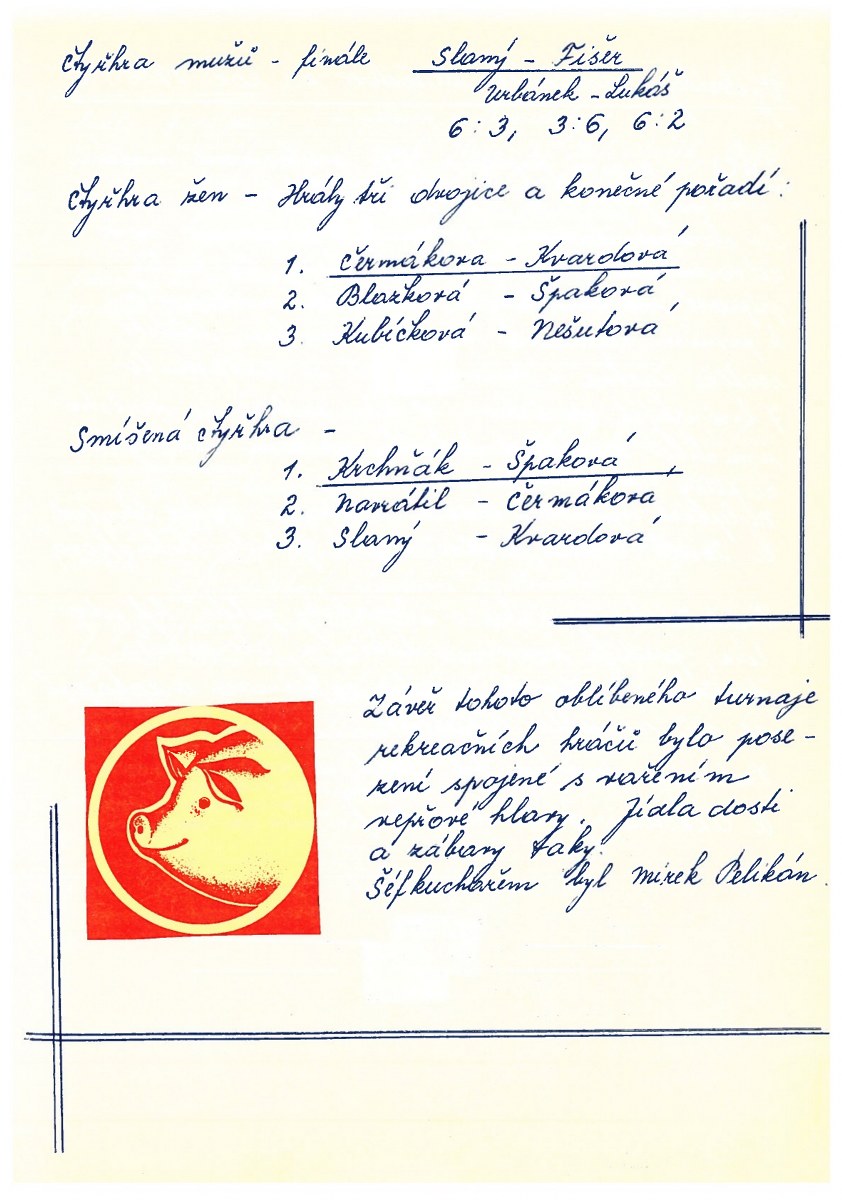 Čtyřhra mužů - finále Slaný - Fišer
Urbánek - Lukáš
6:3, 3:6, 6:2
Čtyřhra žen - Hrály tři dvojice a konečné pořadí:
1. Čermákova - Kvardová
2. Blažková - Špaková
3. Kubíčková - Nešutová
Smíšená čtyřhra -
1. Krchňák - Špaková
2. Navrátil - Čermákova
3. Slaný - Kvardová
Závěr tohoto oblíbeného turnaje
rekreačních hráčů bylo pose-
zení spojené s vařením
vepřové hlavy. Jídla dosti
a zábavy taky.
Šéfkuchařem byl Mirek Pelikán.